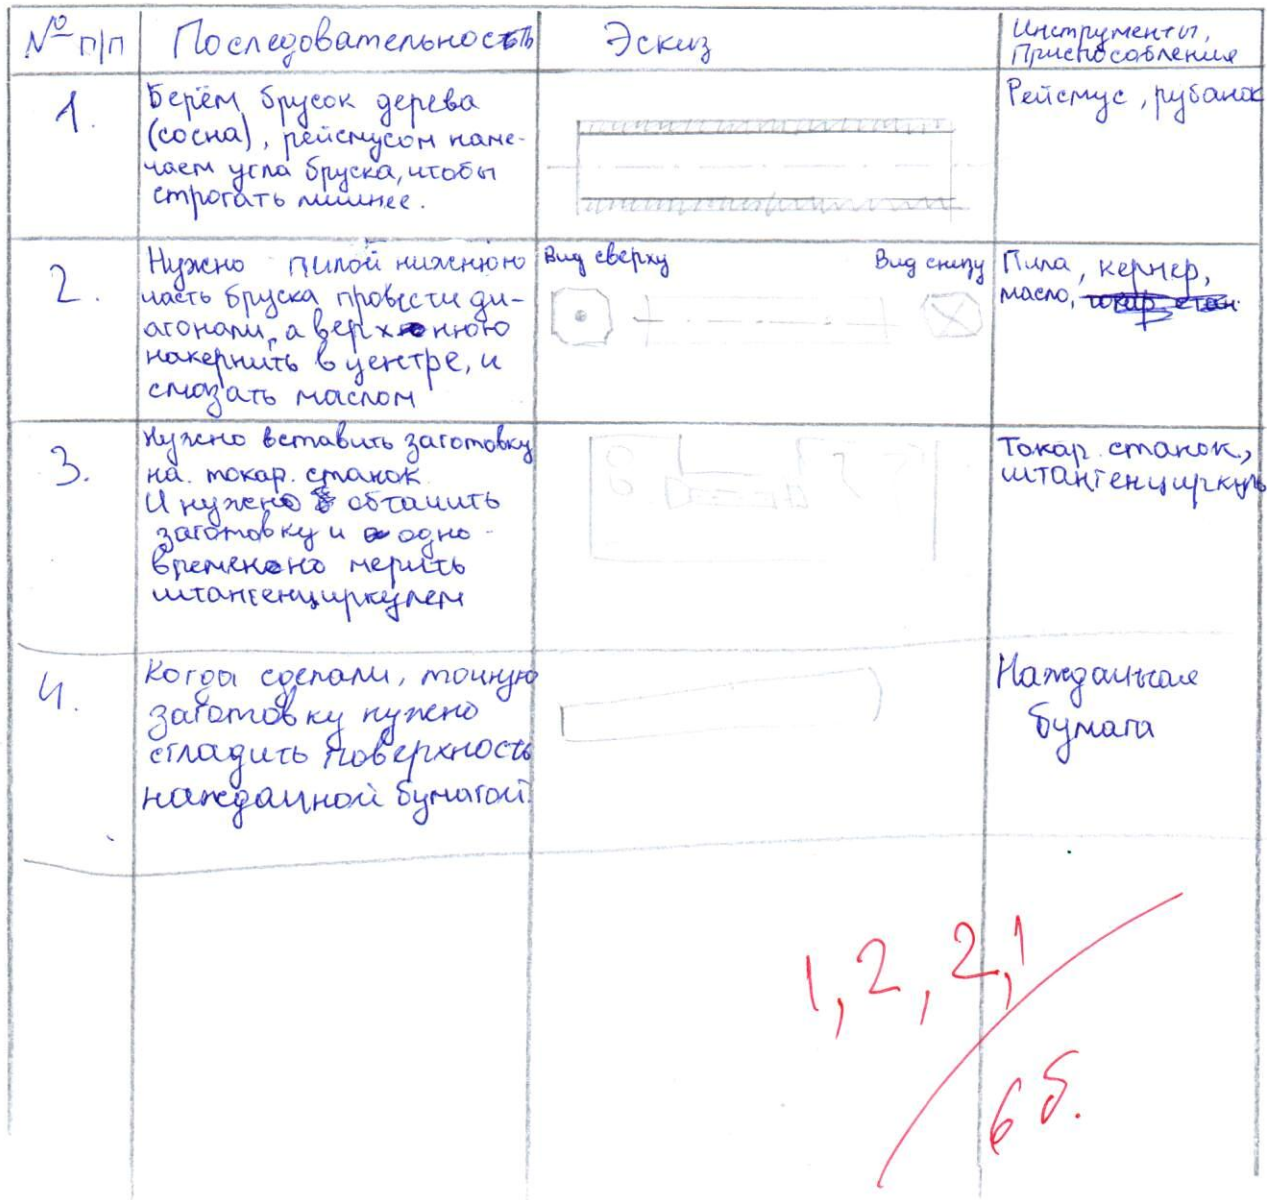 № п/п
Последовательность
Эскиз
Инструменты,
Приспособления
1.
Берём брусок дерева
(сосна), рейсмусом наме-
чаем угла бруска, чтобы
строгать лишнее.
Рейсмус, рубанок
2.
Нужно пилой нижнюю
часть бруска провести ди-
агонали, а верхнюю
накернить в центре, и
смазать маслом
Вид сверху
Вид снизу
Пила, кернер,
масло,
3.
Нужно вставить заготовку
на токар. станок
И нужно обтачить
заготовку и одно-
временно мерить
штангенциркулем
Токар. станок,
штангенциркуль
4.
Когда сделали, точную
заготовку нужно
сгладить поверхность
наждачной бумагой.
Наждачная
бумага
1, 2, 2, 1
6 б.